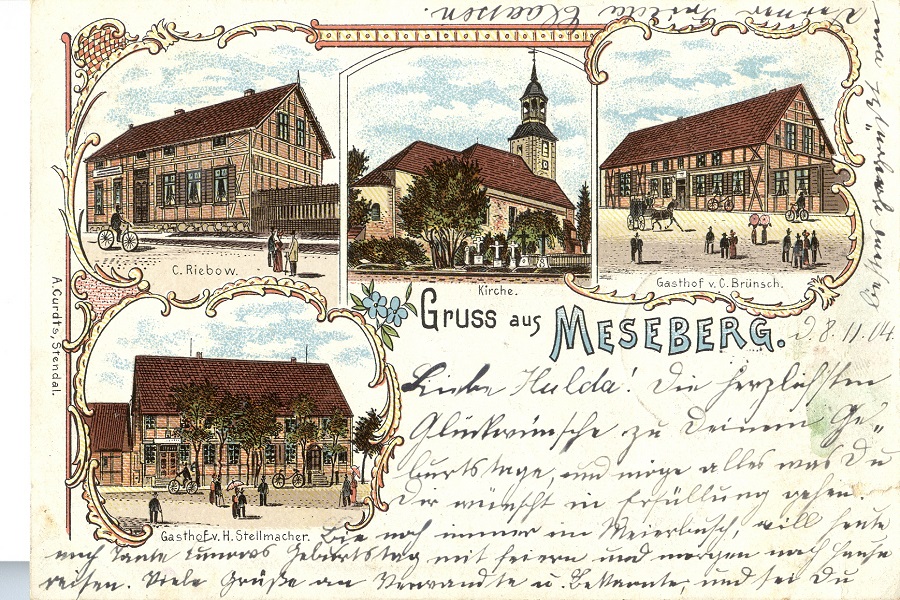 C. Riebow.
Kirche.
Gasthof v. C. Brünsch.
A. Curdts, Stendal.
Gruss aus MESEBERG.
d. 8.11.04
Liebe Hulda! Die herzlichsten
Glückwünsche zu Deinem Ge-
burtstage, und möge alles was Du
Dir wünscht in Erfüllung gehen.
Gasthof v. H. Stellmacher.
Bin noch immer im Meierbusch, will heute
noch Tante Geburtstag mit feiern und morgen nach Hause
reisen. Viele Grüße an Verwandte u. Bekannte, und sei Du
Claassen.